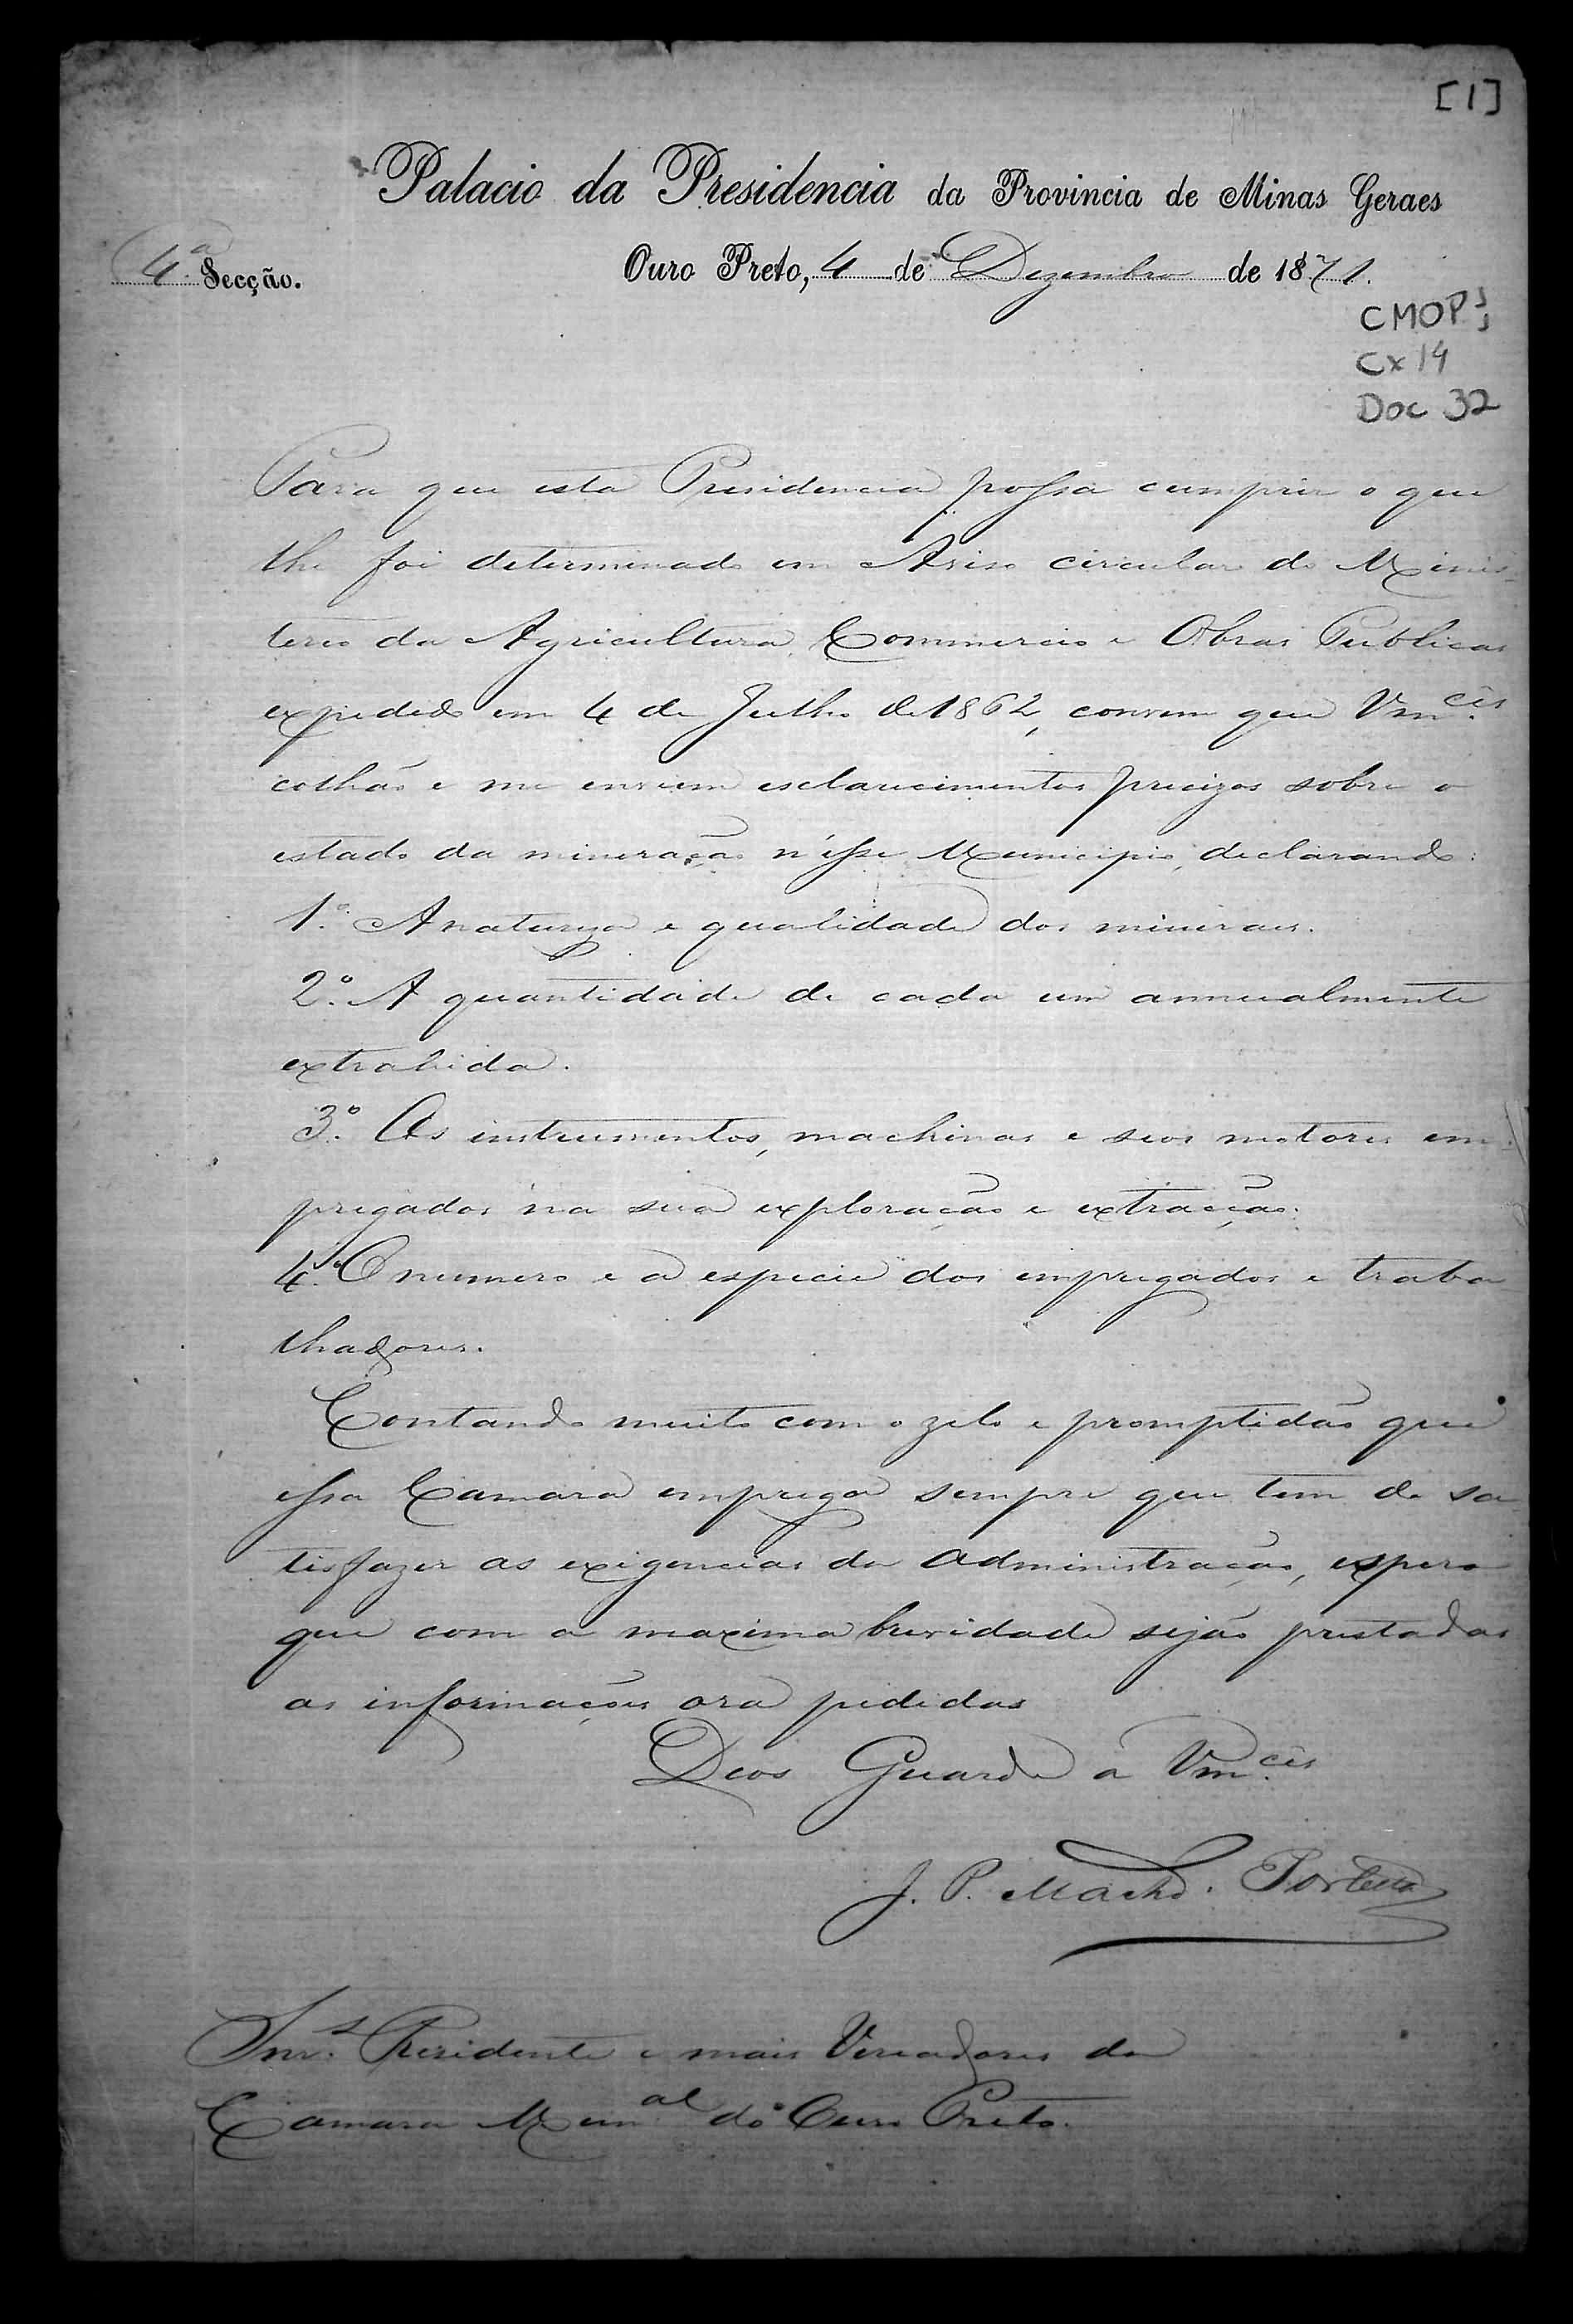 [1]
Palacio da Presidencia da Provincia de Minas Geraes
4ª Secção.
Ouro Preto, 4 de Dezembro de 1871.
CMOP
Cx 14
Doc 32
Para que esta Presidencia possa cumprir o que
lhe foi determinado em Aviso circular do Minis-
terio da Agricultura, Commercio e Obras Publicas
expedido em 4 de Julho de 1862, convem que Vm.cês
colhão e me enviem esclarecimentos precizos sobre o
estado da mineração n'esse Municipio, declarando:
1.º A natureza e qualidade dos mineraes.
2.º A quantidade de cada um annualmente
extrahida.
3.º Os instrumentos, machinas e seos motores em-
pregados na sua exploração e extracção.
4.º O numero e a especie dos empregados e traba
lhadores.
Contando muito com o zelo e promptidão que
essa Camara emprega sempre que tem de sa
tisfazer as exigencias da administração, espero
que com a maxima brevidade sejão prestadas
as informações ora pedidas
Deos Guarde a Vm.cês
J. P. Machd. Portella
Snr.s Presidente e mais Vereadores da
Camara Mun.al do Ouro Preto.